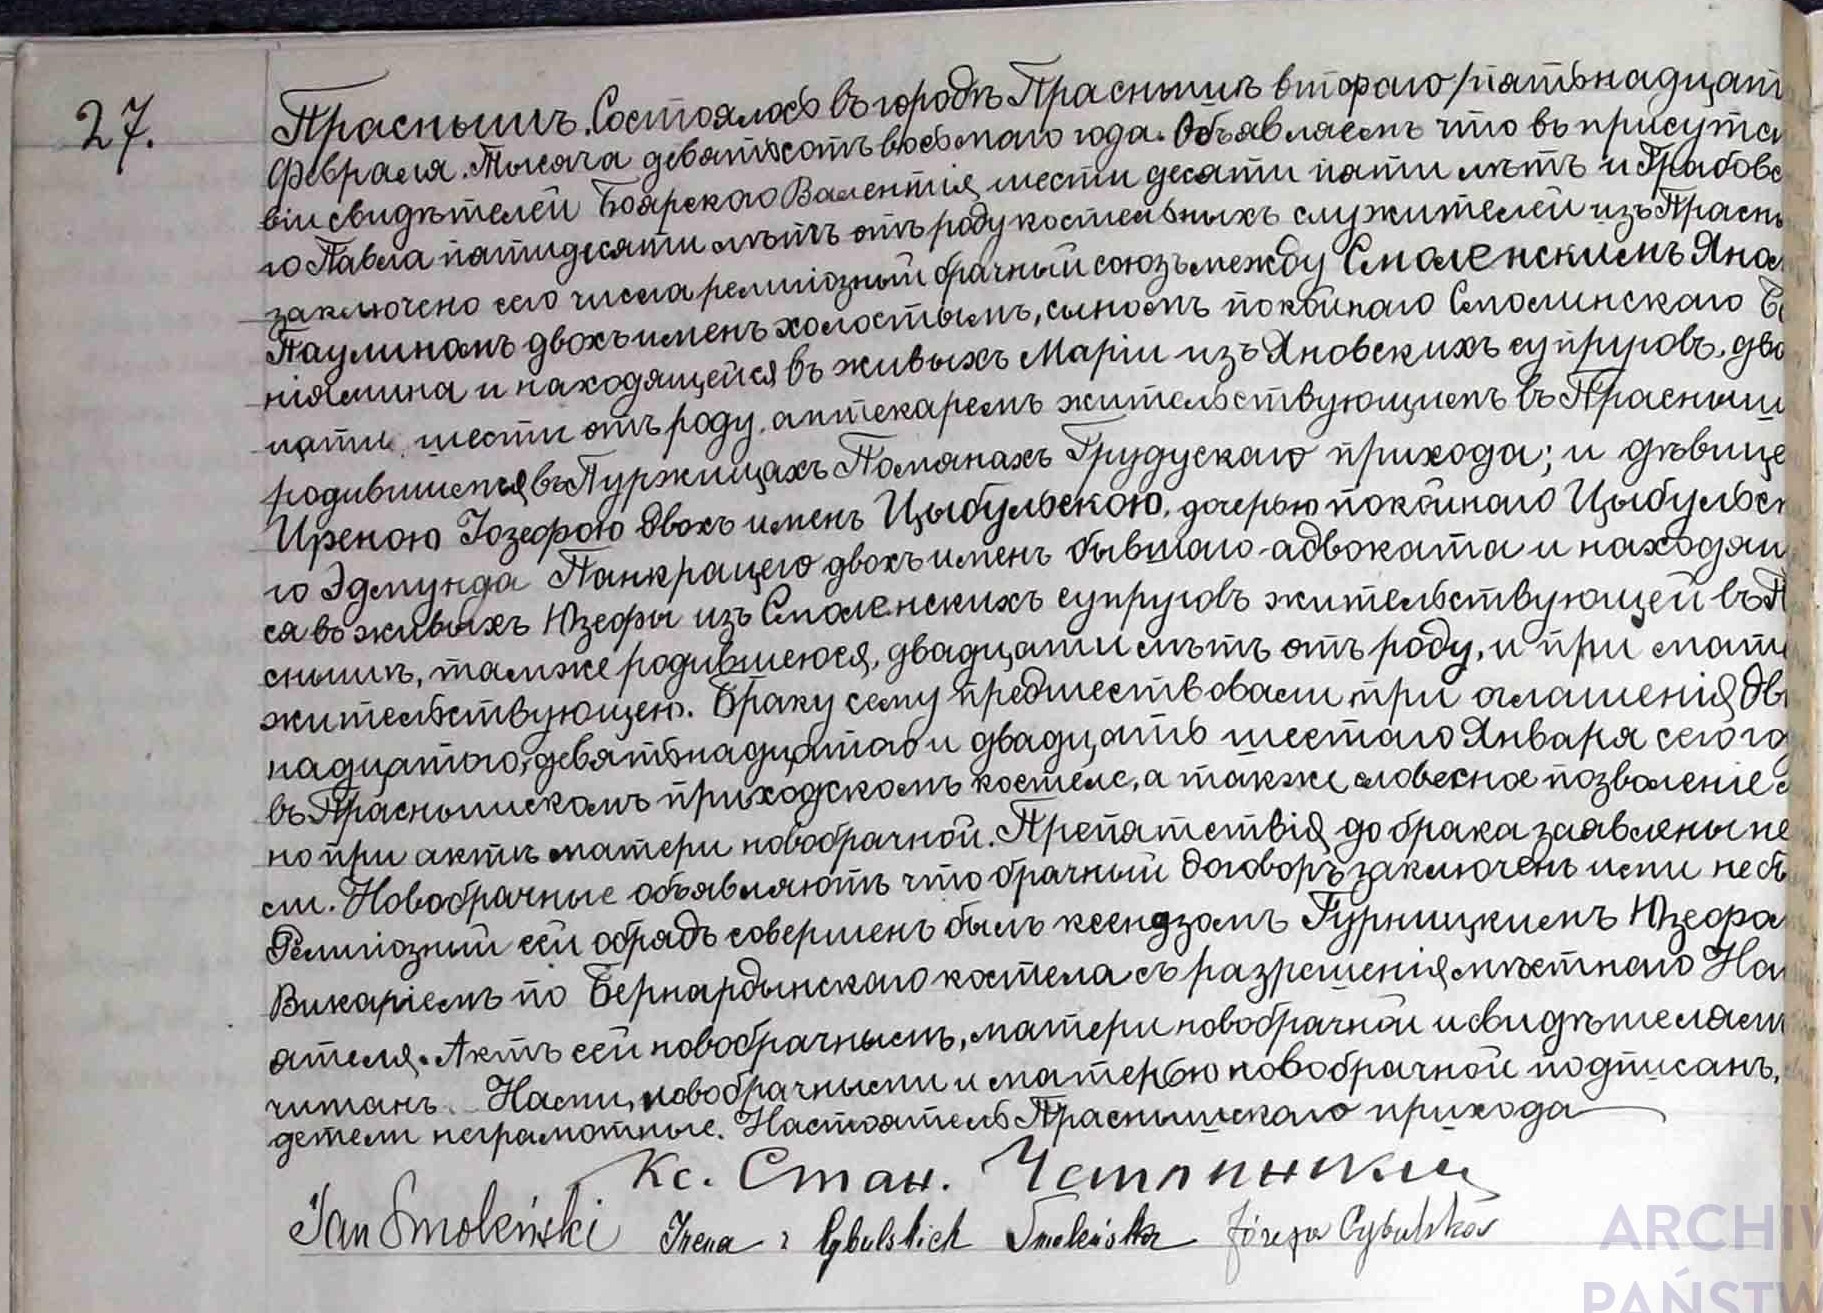 27.
Праснышъ. Состоялось въ городѣ Праснышѣ втораго/пятьнадцат
Февраля. Тысяча девятьсотъ восьмаго года. Объявляемъ что въ присутс
віи свидѣтелей Боярскаго Валентія, шести десяти пяти лѣтъ и Грабовс
го Павла пятидесяти лѣтъ отъ роду костельныхъ служителей изъ Прасны
заключено сего числа религіозный брачный союзъ между Смоленскимъ Яно
Паулиномъ двохъ именъ холостымъ, сыномъ покойнаго Смолинскаго Б
ніямина и находящейся въ живыхъ Маріи изъ Яновскихъ супруговъ, два
цати шести отъ роду, аптекаремъ жительствующимъ въ Прасныш
родившимся въ Пуржицахъ Помянахъ Грудускаго прихода; и дѣвице
Иреною Іозефою двохъ именъ Цыбульскою, дочерью покойнаго Цыбульск
го Эдмунда Панкрацего двохъ именъ бывшаго адвоката и находящ
ся въ живыхъ Юзефы изъ Смоленскихъ супруговъ жительствующей въ П
снышѣ, тамже родившеюся, двадцати лѣтъ отъ роду, и при мате
жительствующею. Браку сему предшествовали три оглашенія, дв
надцатого, девятьнадцатаго и двадцать шестаго Января сего го
въ Праснышскомъ приходскомъ костеле, а также словесное позволеніе д
но при актѣ матери новобрачной. Препятствія до брака заявлены не
ли. Новобрачные объявляютъ что брачный договоръ заключенъ ими не бы
Религіозный сей обрядъ совершенъ былъ ксендзомъ Гурницкимъ Юзефо
Викаріемъ по Бернардынскаго костела съ разрешенія мѣстнаго На
ателя. Актъ сей новобрачнымъ, матери новобрачной и свидѣтелям
читанъ. Нами, новобрачными и матерью новобрачной подписанъ,
детели неграмотные. Настоятель Праснышскаго прихода
Кс. Стан.
Jan Smoleński Irena z Cybulskich Smoleńska Józefa Cybulska
ARCHIW
PAŃSTW